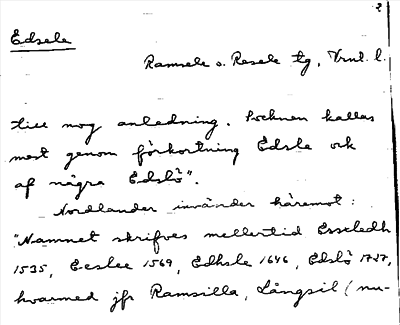 2
Edsele
Ramsele o. Resele tg, Vrnl. l.
till nog anledning. Socknen kallas
mest genom förkortning Edsle och
af några Edslö".
Nordlander invänder häremot:
"Namnet skrifves mellertid Esseledh
1535, Eeslee 1569, Edhsle 1646, Edslö 1737,
hvarmed jfr Ramsilla, Långsil (nu-